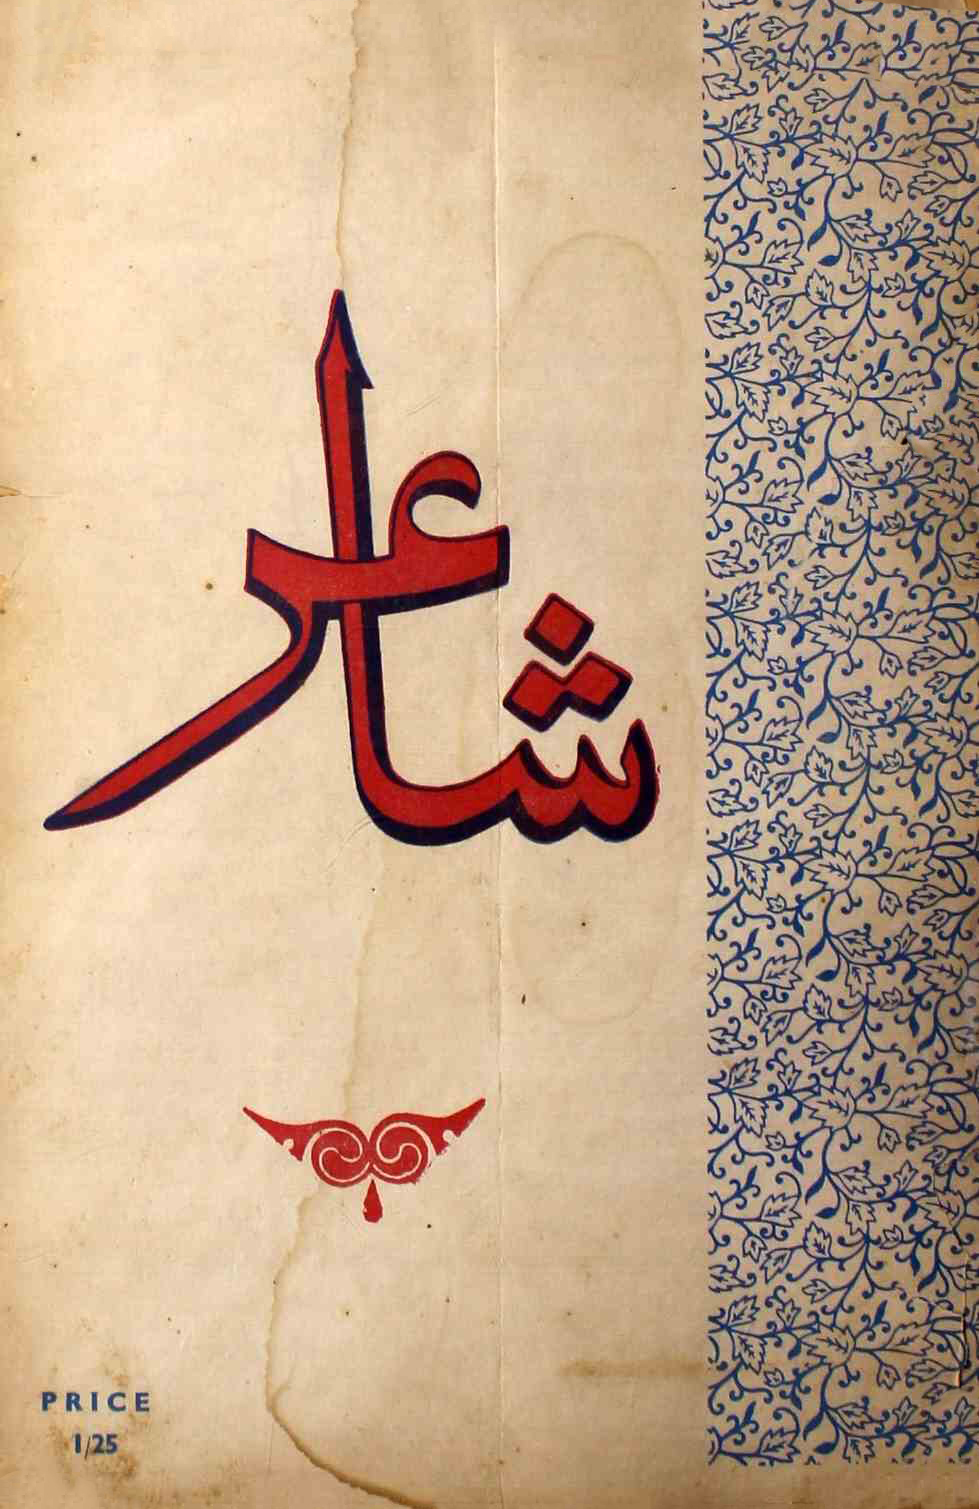 شاعر
PRICE
1/25